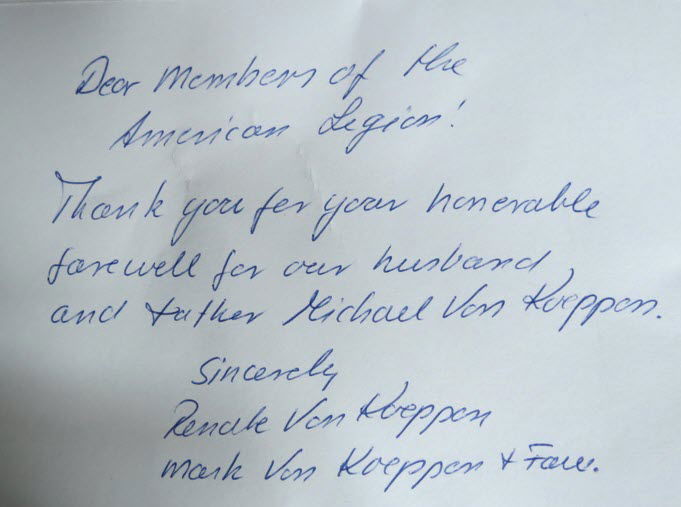 Dear Members of the
American Legion!
Thank you for your honorable
farewell for our husband,
and father Michael Von Koeppen.
Sincerely
Renate Von Koeppen
Mark Von Koeppen + Fam.